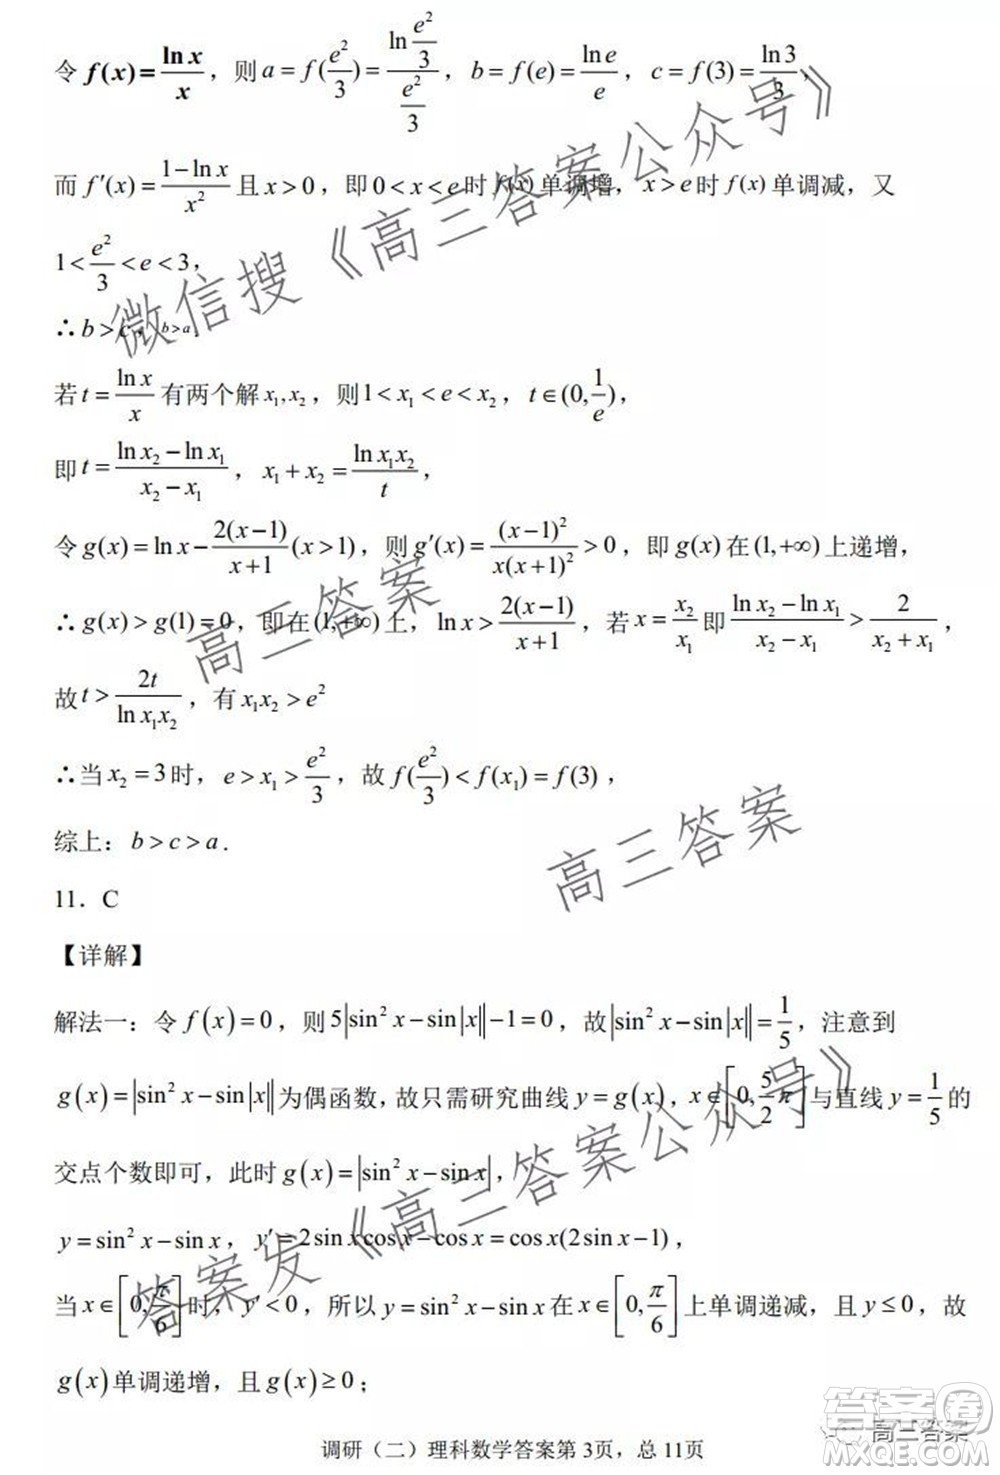 令 f(x)=ln x/x，则 a=f(e²/3)=ln(e²/3)/(e²/3)，b=f(e)=ln e/e，c=f(3)=ln 3/3，
而 f′(x)=(1−ln x)/x² 且 x>0，即 0<x<e 时 f(x) 单调增，x>e 时 f(x) 单调减，又
1<e²/3<e<3，
∴ b>c，b>a.
若 t=ln x/x 有两个解 x₁,x₂，则 1<x₁<e<x₂，t∈(0,1/e)，
即 t=(ln x₂−ln x₁)/(x₂−x₁)，x₁+x₂=ln x₁x₂/t，
令 g(x)=ln x−2(x−1)/(x+1)(x>1)，则 g′(x)=(x−1)²/(x(x+1)²)>0，即 g(x) 在 (1,+∞) 上递增，
∴ g(x)>g(1)=0，即在 (1,+∞) 上，ln x>2(x−1)/(x+1)，若 x=x₂/x₁ 即 (ln x₂−ln x₁)/(x₂−x₁)>2/(x₂+x₁)，
故 t>2t/ln x₁x₂，有 x₁x₂>e²
∴当 x₂=3 时，e>x₁>e²/3，故 f(e²/3)<f(x₁)=f(3)，
综上：b>c>a．
11．C
【详解】
解法一：令 f(x)=0，则 5|sin²x−sin|x||−1=0，故|sin²x−sin|x||=1/5，注意到
g(x)=|sin²x−sin|x||为偶函数，故只需研究曲线 y=g(x)，x∈[0,5/2π]与直线 y=1/5 的
交点个数即可，此时 g(x)=|sin²x−sin x|，
y=sin²x−sin x，y′=2sin x cos x−cos x=cos x(2sin x−1)，
当 x∈[0,π/6]时，y′<0，所以 y=sin²x−sin x 在 x∈[0,π/6]上单调递减，且 y≤0，故
g(x) 单调递增，且 g(x)≥0；
调研（二）理科数学答案第 3页，总 11页
微信搜《高三答案公众号》
高三答案
高三答案
答案发《高三答案公众号》
高三答案
答案圈
MXQE.COM